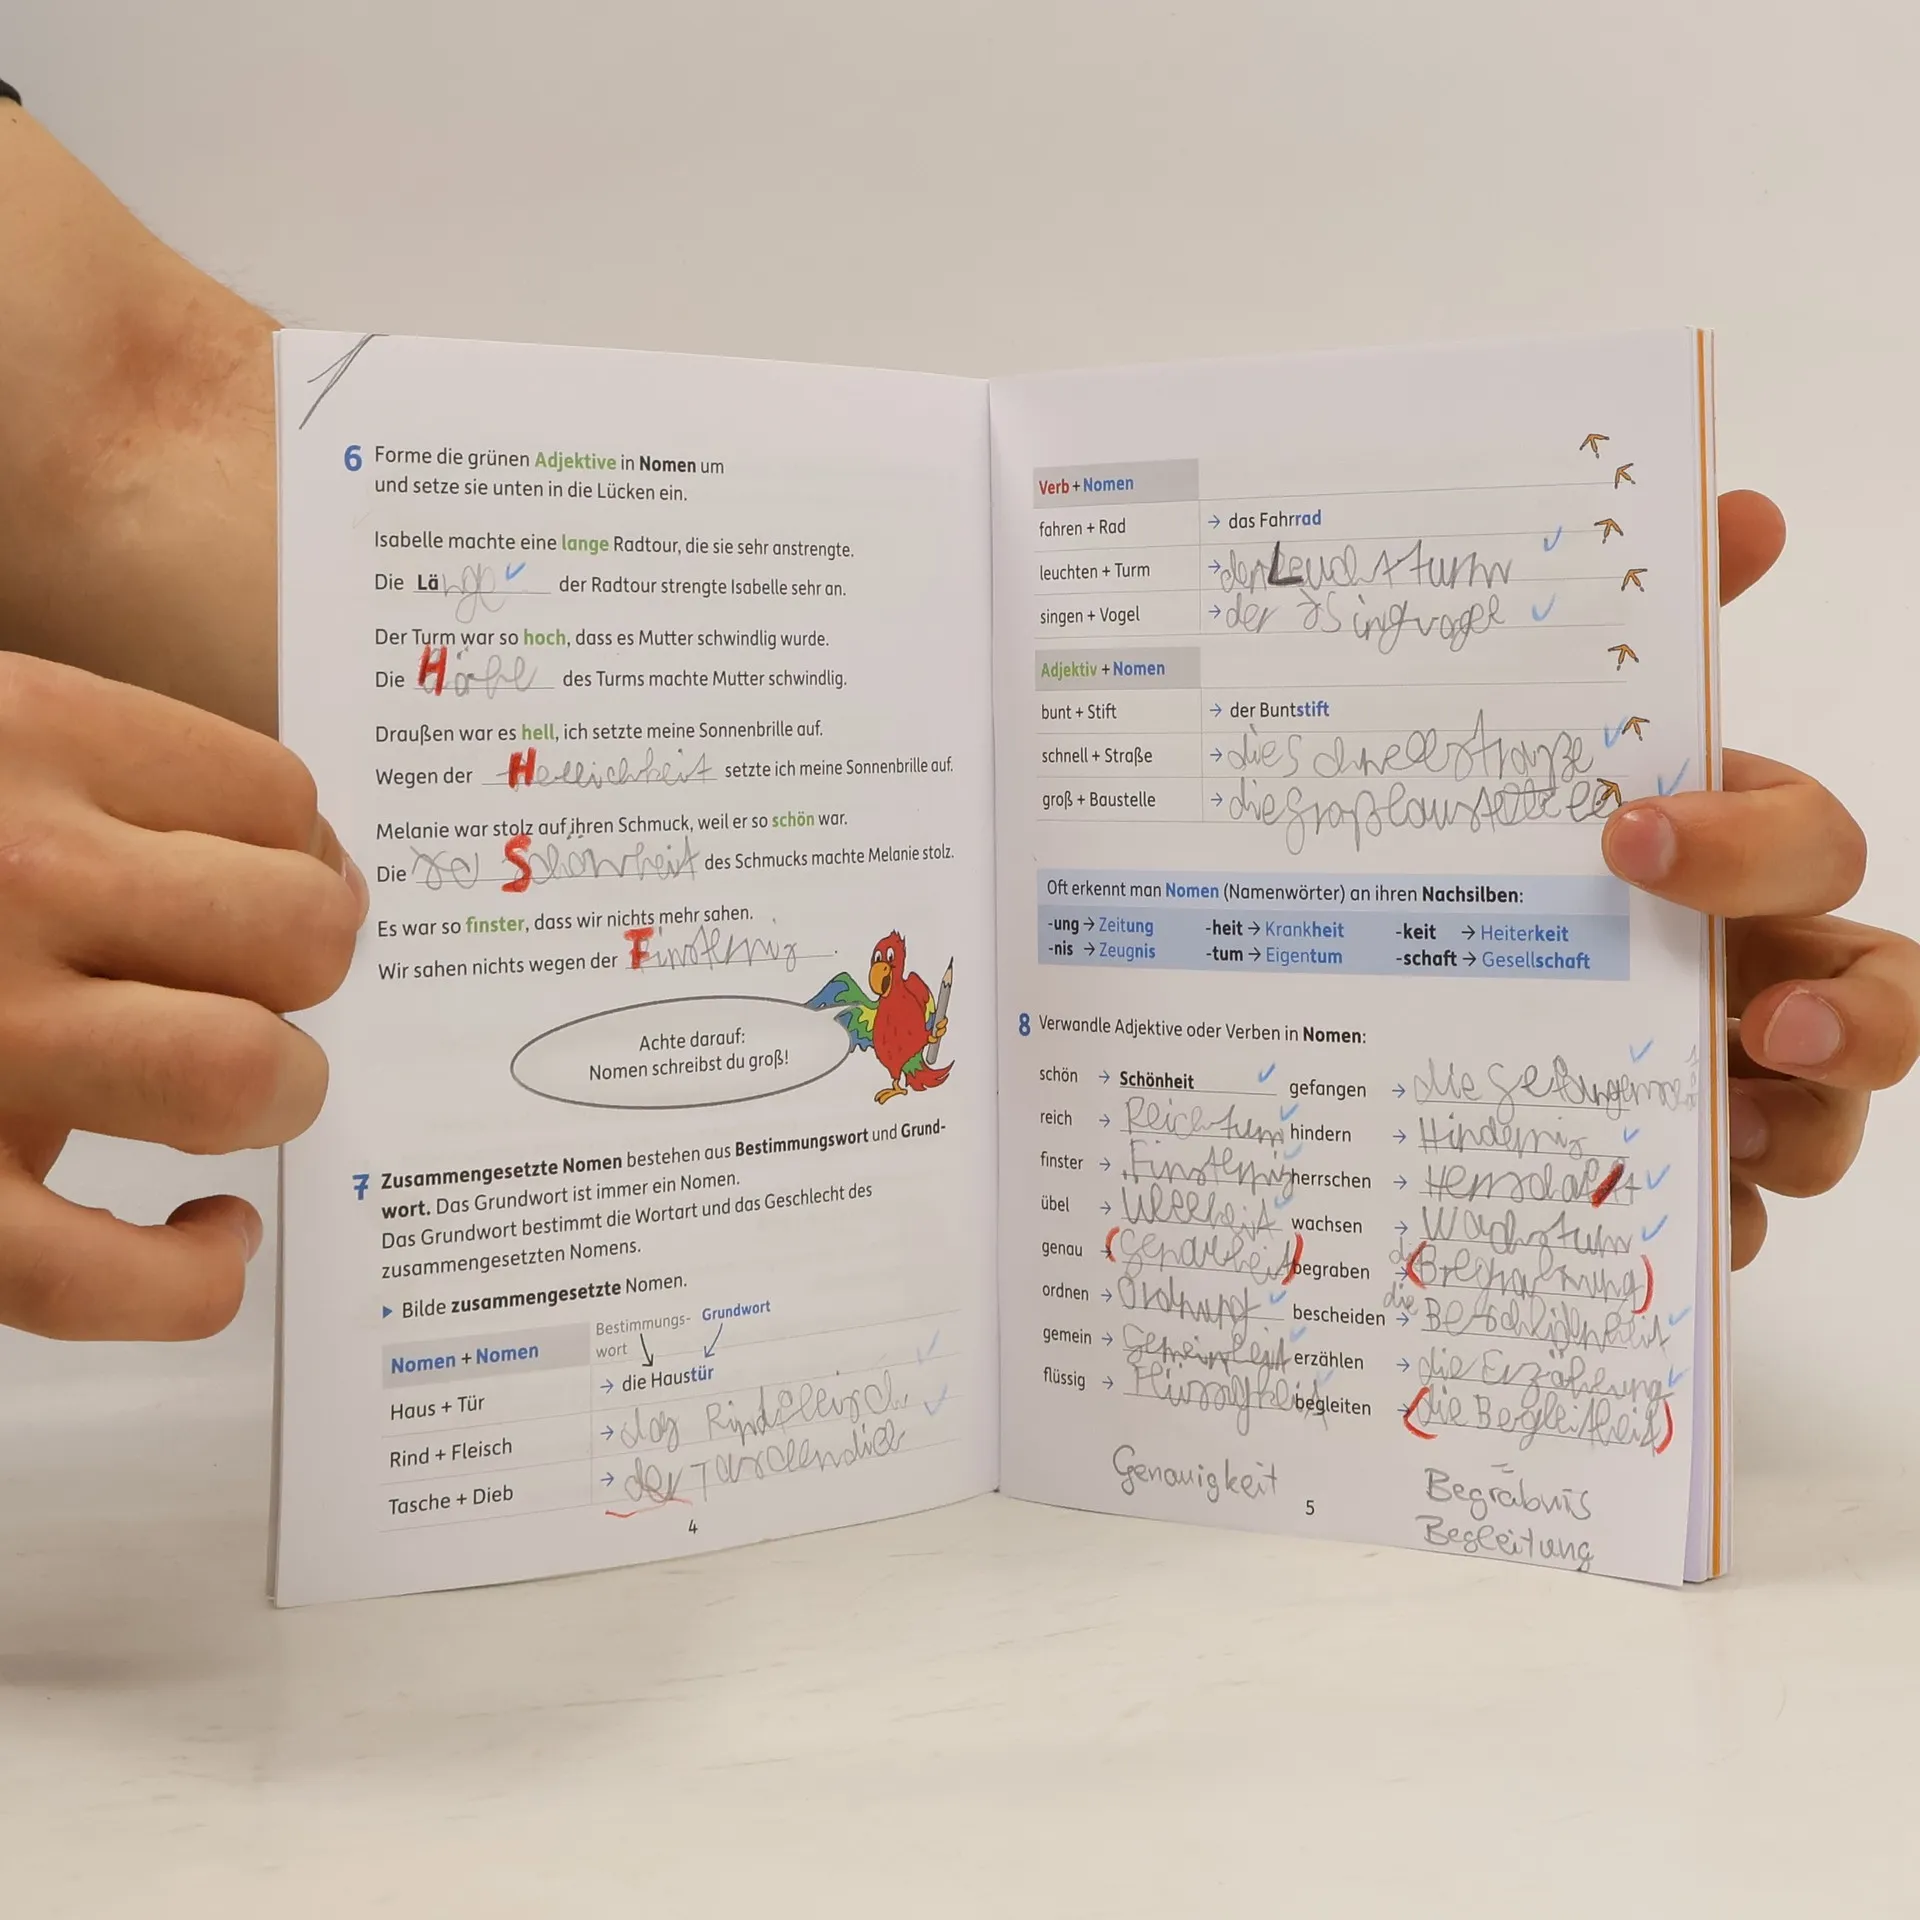 6 Forme die grünen Adjektive in Nomen um
und setze sie unten in die Lücken ein.
Isabelle machte eine lange Radtour, die sie sehr anstrengte.
Die Länge der Radtour strengte Isabelle sehr an.
Der Turm war so hoch, dass es Mutter schwindlig wurde.
Die Höhe des Turms machte Mutter schwindlig.
Draußen war es hell, ich setzte meine Sonnenbrille auf.
Wegen der Hellichkeit setzte ich meine Sonnenbrille auf.
Melanie war stolz auf ihren Schmuck, weil er so schön war.
Die Schönheit des Schmucks machte Melanie stolz.
Es war so finster, dass wir nichts mehr sahen.
Wir sahen nichts wegen der Finsternis.
Achte darauf:
Nomen schreibst du groß!
7 Zusammengesetzte Nomen bestehen aus Bestimmungswort und Grund-
wort. Das Grundwort ist immer ein Nomen.
Das Grundwort bestimmt die Wortart und das Geschlecht des
zusammengesetzten Nomens.
▶ Bilde zusammengesetzte Nomen.
Nomen + Nomen Bestimmungs- Grundwort
wort
Haus + Tür → die Haustür
Rind + Fleisch → das Rindfleisch
Tasche + Dieb → der Taschendieb
4
Verb + Nomen
fahren + Rad → das Fahrrad
leuchten + Turm → der Leuchtturm
singen + Vogel → der Singvogel
Adjektiv + Nomen
bunt + Stift → der Buntstift
schnell + Straße → die Schnellstraße
groß + Baustelle → die Großbaustelle
Oft erkennt man Nomen (Namenwörter) an ihren Nachsilben:
-ung → Zeitung -heit → Krankheit -keit → Heiterkeit
-nis → Zeugnis -tum → Eigentum -schaft → Gesellschaft
8 Verwandle Adjektive oder Verben in Nomen:
schön → Schönheit gefangen → die
reich → Reichtum hindern → Hindernis
finster → Finsternis herrschen → Herrschaft
übel → wachsen → Wachstum
genau → begraben → die
ordnen → Ordnung bescheiden → die Bescheidenheit
gemein → Gemeinheit erzählen → die Erzählung
flüssig → Flüssigkeit begleiten → die Begleitheit
Genauigkeit
5
Begräbnis
Begleitung